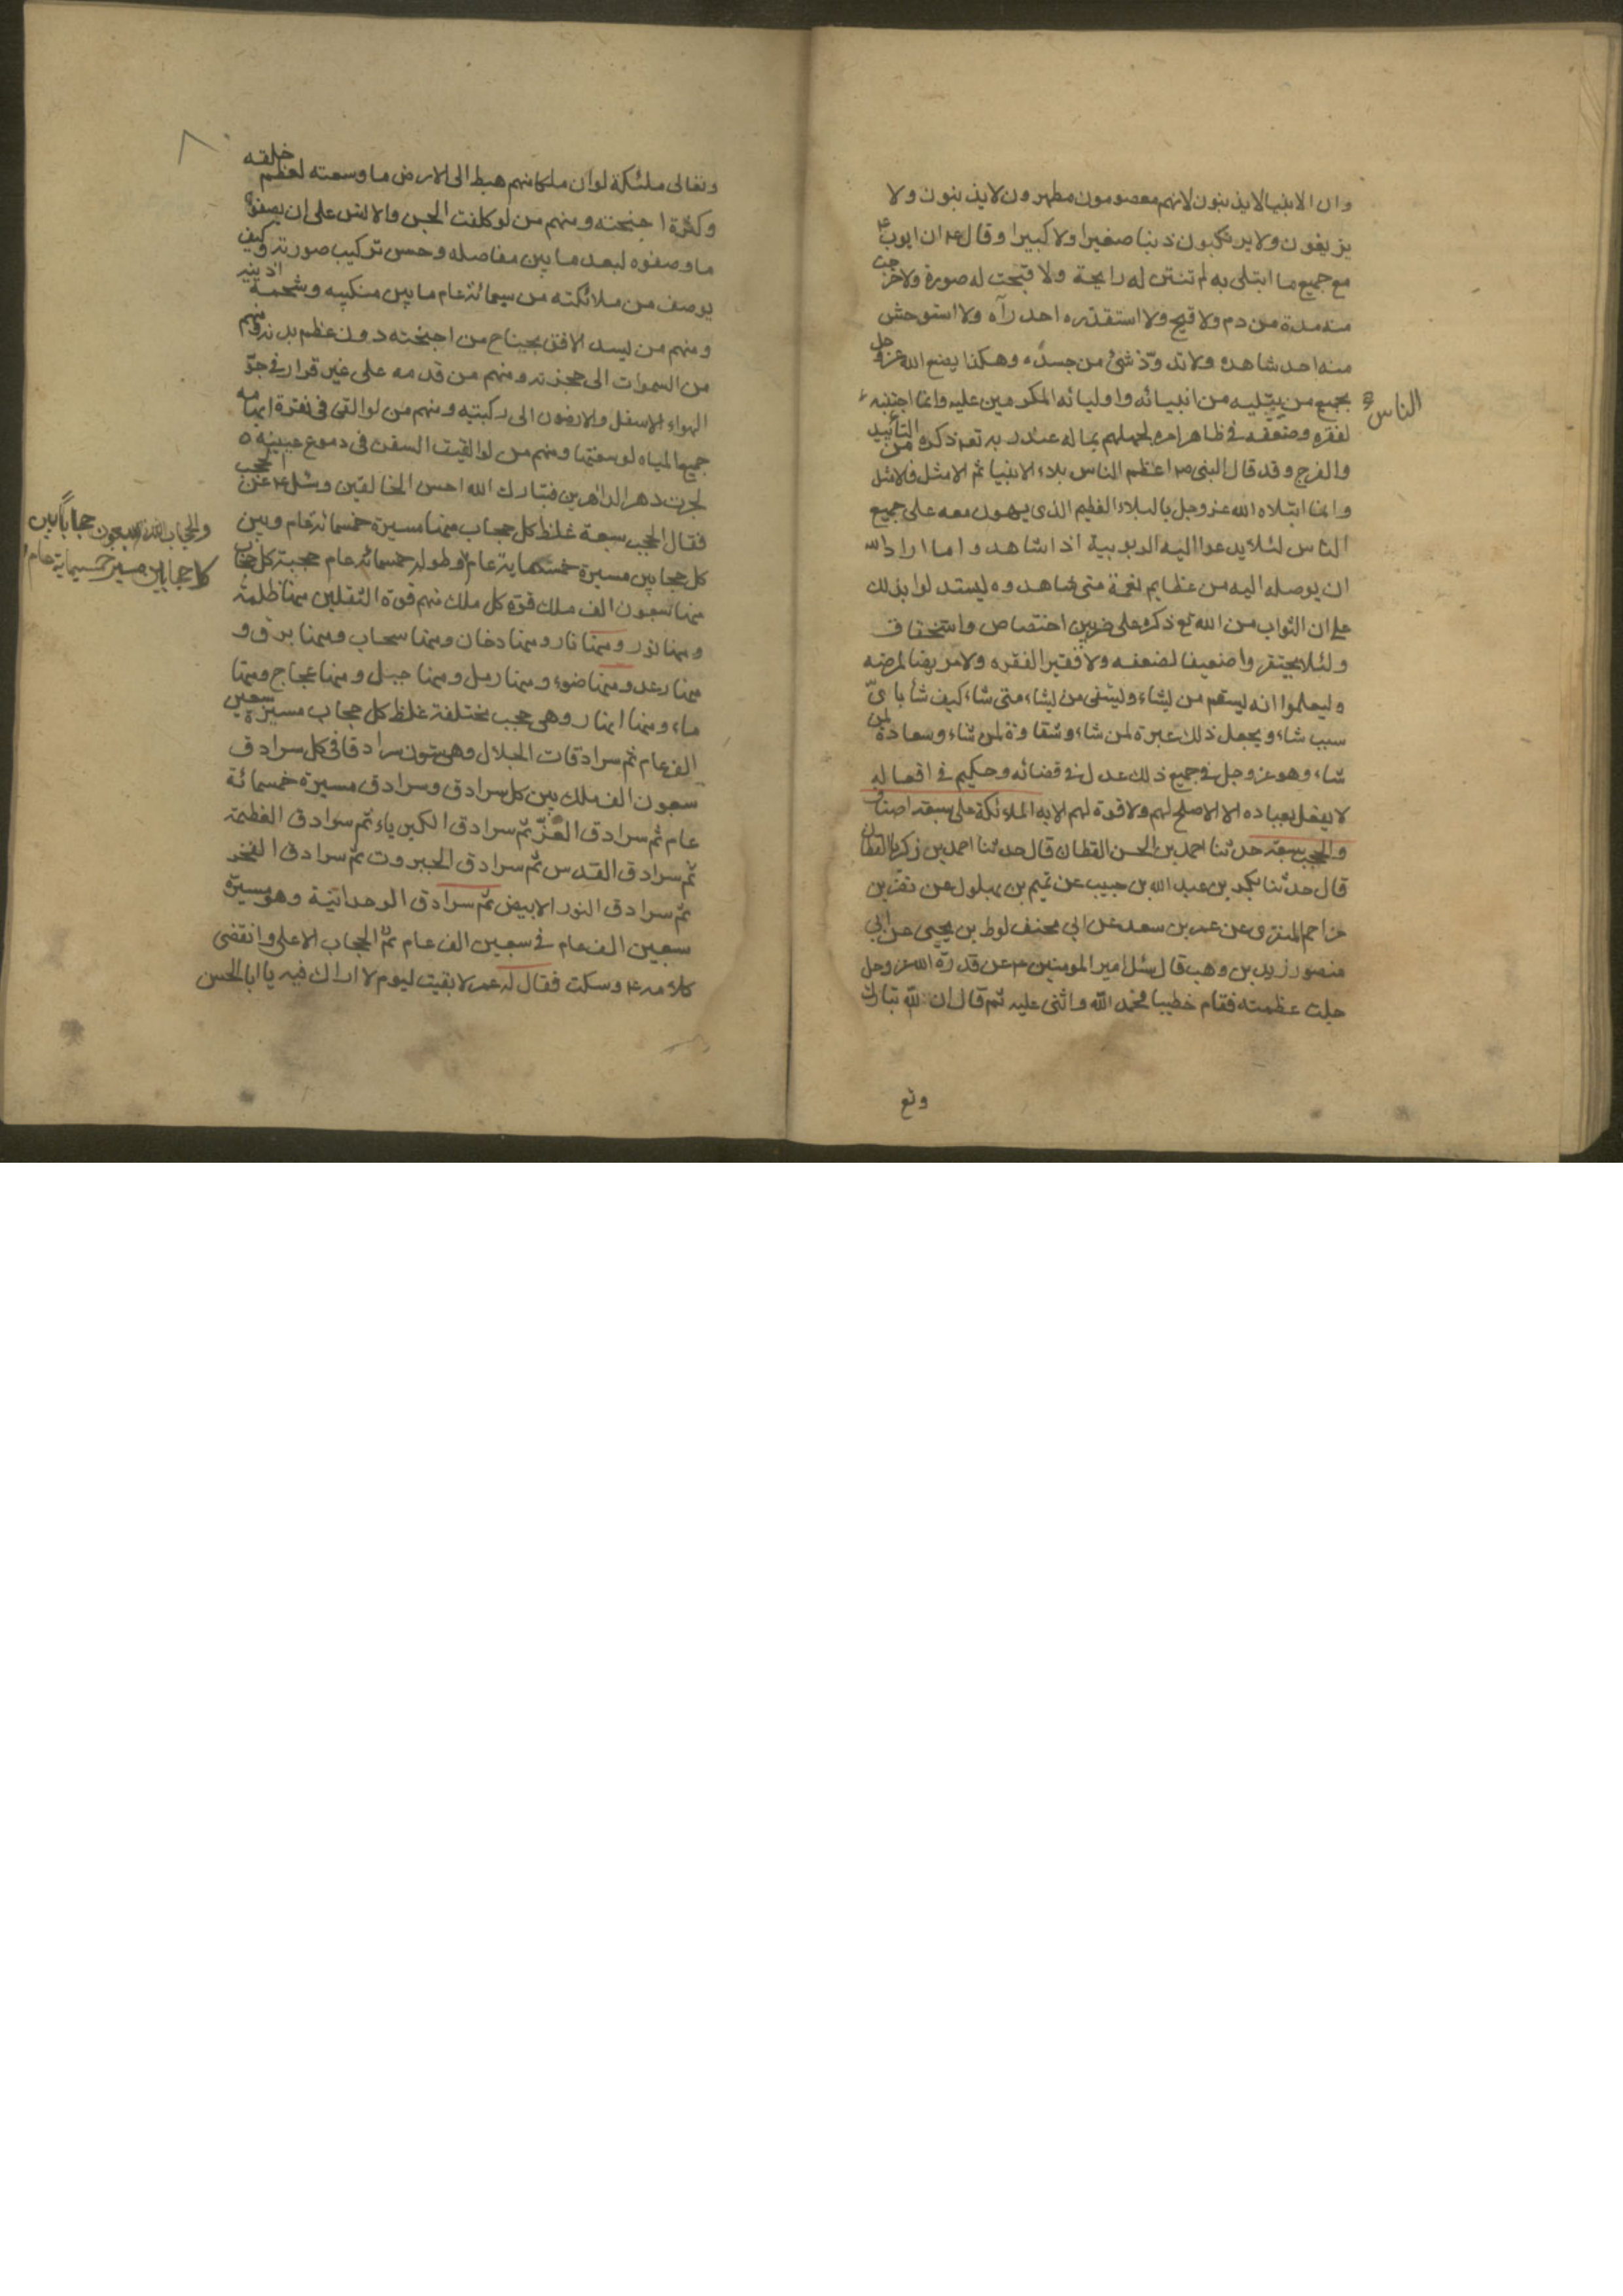 وان الانبيا لا يذنبون لانهم معصومون مطهرون لا يذنبون ولا
يزيغون ولا يرتكبون ذنبا صغيرا ولا كبيرا وقال ع ان ايوب ع
مع جميع ما ابتلى به لم تنتن له رايحة ولا قبحت له صورة ولا خرجت
منه مدة من دم ولا قيح ولا استقذره احد رآه ولا استوحش
منه احد شاهده ولا تدوّد شئ من جسده وهكذا يصنع الله عز وجل
بجميع من يبتليه من انبيائه واوليائه المكرمين عليه وانما اجتنبه
الناس
لفقره وضعفه في ظاهر امره لجهلهم بما له عند ربه تع ذكره من التأييد
والفرج وقد قال النبى ص اعظم الناس بلاء الانبيا ثم الامثل فالامثل
وانما ابتلاه الله عز وجل بالبلاء العظيم الذى يهون معه على جميع
الناس لئلا يدعوا اليه الربوبية اذا شاهدوا ما اراد الله
ان يوصله اليه من عظايم نعمة متى شاهدوه ليستدلوا بذلك
على ان الثواب من الله تع ذكره على ضربين اختصاص واستحقاق
ولئلا يحتقروا ضعيفا لضعفه ولا فقيرا لفقره ولا مريضا لمرضه
وليعلموا انه يسقم من يشاء ويشفى من يشاء متى شاء كيف شا باىّ
سبب شاء ويجعل ذلك عبرة لمن شاء وشقاوة لمن شاء وسعادة لمن
شاء وهو عز وجل في جميع ذلك عدل في قضائه وحكيم في افعاله
لا يفعل بعباده الا الاصلح لهم ولا قوة لهم الا به الملائكة على سبعة اصناف
والحجب سبعة حدثنا احمد بن الحسن القطان قال حدثنا احمد بن زكريا القطان
قال حدثنا بكر بن عبد الله بن حبيب عن تميم بن بهلول عن نصر بن
مزاحم المنقرى عن عمر بن سعد عن ابي مخنف لوط بن يحيى عن ابي
منصور زيد بن وهب قال سئل امير المومنين ع عن قدرة الله عز وجل
جلت عظمته فقام خطيبا فحمد الله واثنى عليه ثم قال ان لله تبارك
وتع
وتعالى ملئكة لو ان ملكا منهم هبط الى الارض ما وسعته لعظم خلقه
وكثرة اجنحته ومنهم من لو كلفت الجن والانس على ان يصفوه
ما وصفوه لبعد ما بين مفاصله وحسن تركيب صورته وكيف
يوصف من ملائكته من سبمائة عام ما بين منكبيه وشحمة اذنيه
ومنهم من يسد الافق بجناح من اجنحته دون عظم بدنه ومنهم
من السموات الى حجزته ومنهم من قدمه على غير قرار في جوّ
الهواء الاسفل والارضون الى ركبتيه ومنهم من لو القى في نقرة ابهامه
جميع المياه لوسعتها ومنهم من لو القيت السفن في دموع عينيه
لجرت دهر الداهرين فتبارك الله احسن الخالقين وسئل ع عن الحجب
فقال الحجب سبعة غلظ كل حجاب منها مسيرة خمسمائة عام وبين
كل حجابين مسيرة خمسماية عام وطوله خمسمائة عام حجبة كل حجاب
منها سبعون الف ملك قوة كل ملك منهم قوة الثقلين منها ظلمة
ومنها نور ومنها نار ومنها دخان ومنها سحاب ومنها برق و
منها رعد ومنها ضوء ومنها رمل ومنها جبل ومنها عجاج ومنها
ماء ومنها انهار وهي حجب مختلفة غلظ كل حجاب مسيرة سبعين
الف عام ثم سرادقات الجلال وهي ستون سرادقا في كل سرادق
سبعون الف ملك بين كل سرادق وسرادق مسيرة خمسمائة
عام ثم سرادق العزّ ثم سرادق الكبرياء ثم سرادق العظمة
ثم سرادق القدس ثم سرادق الجبروت ثم سرادق الفخر
ثم سرادق النور الابيض ثم سرادق الوحدانية وهو مسيرة
سبعين الف عام في سبعين الف عام ثم الحجاب الاعلى وانقضى
كلامه ع وسكت فقال له عمر لا بقيت ليوم لا اراك فيه يا ابا الحسن
والحجاب الثالث سبعون حجابا بين
كل حجابين مسيرة خمسماية عام